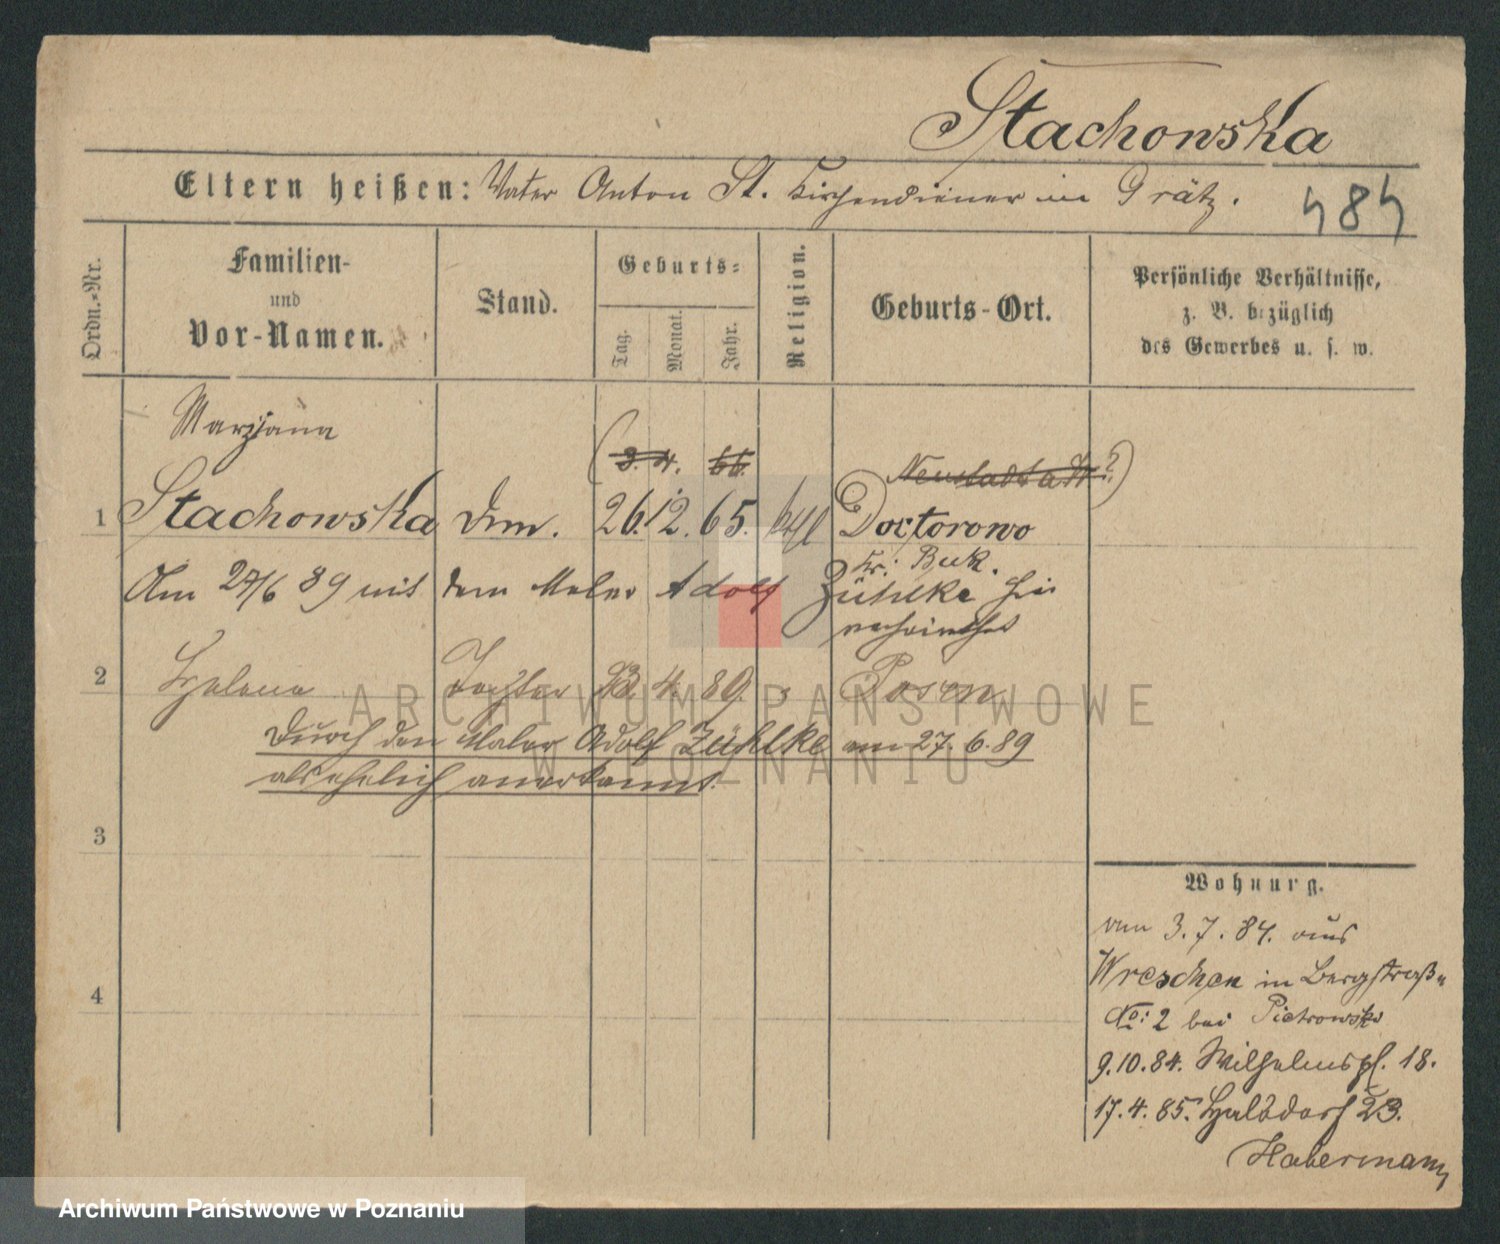 Stachowska
Eltern heißen: Vater Anton St. Kirchendiener in Grätz.
484
Ordn.-Nr.
Familien-
und
Vor-Namen.
Stand.
Geburts-
Tag.
Monat.
Jahr.
Religion.
Geburts-Ort.
Persönliche Verhältnisse,
z. B. bezüglich
des Gewerbes u. s. w.
Maryanna
(3. 4. 66. Neustadt a/W?)
1 Stachowska 26. 12. 65. kath Doctorowo
Kr: Buk.
Am 27/6 89 mit dem Maler Adolf Zühlke hier
verheirathet
2 Helena Tochter 4. 89. Posen
Durch den Maler Adolf Zühlke am 27. 6. 89
als ehelich anerkannt.
3
4
Wohnung.
am 3. 7. 84. aus
Wreschen in Bergstraße
No: 2 bei Pietrowski
9. 10. 84. Wilhelmspl. 18.
17. 4. 85. Halbdorf 23.
Habermann
ARCHIWUM PAŃSTWOWE
W POZNANIU
Archiwum Państwowe w Poznaniu